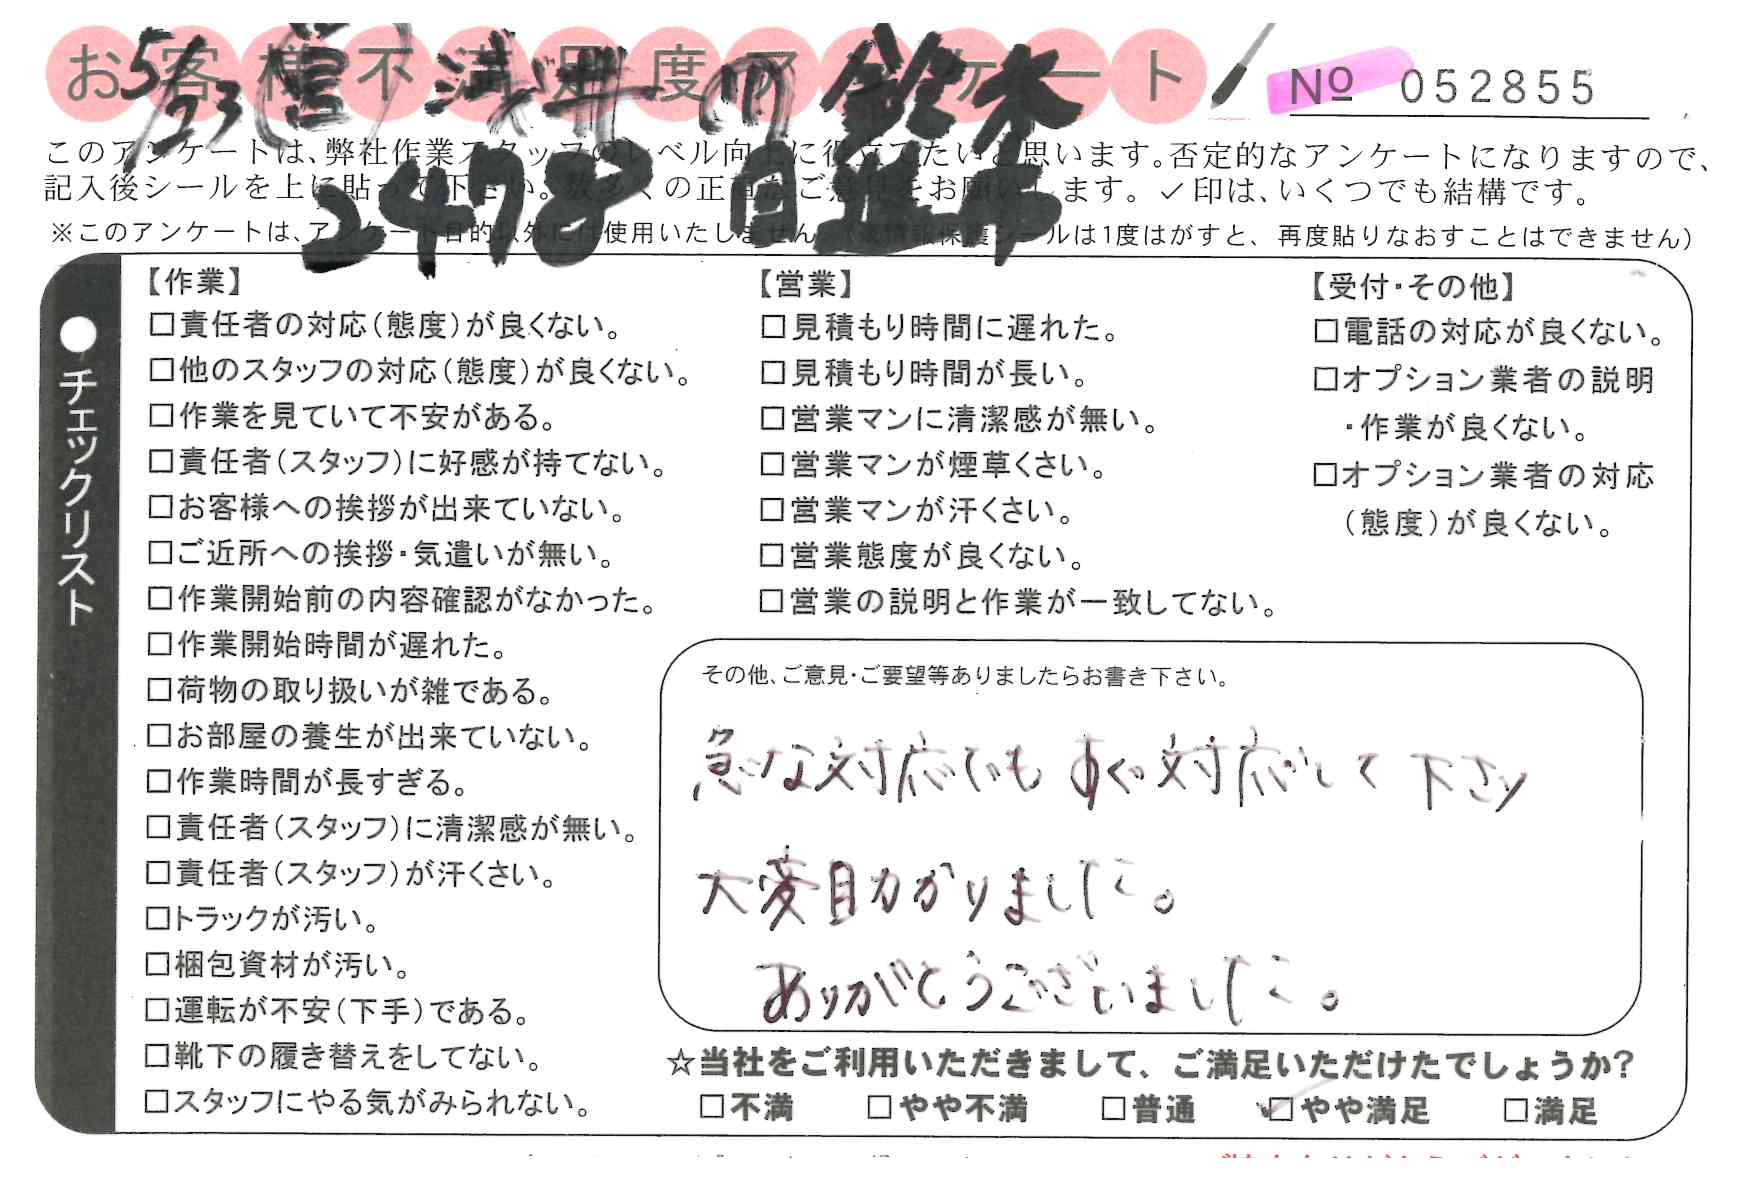 お客様不満足度アンケート
№ 052855
5/23 浅井 鈴木
2478
このアンケートは、弊社作業スタッフのレベル向上に役立てたいと思います。否定的なアンケートになりますので、
記入後シールを上に貼って下さい。数多くの正直なご意見をお願いします。✓印は、いくつでも結構です。
※このアンケートは、アンケート目的以外には使用いたしません。 シールは1度はがすと、再度貼りなおすことはできません)
●チェックリスト
【作業】
□責任者の対応(態度)が良くない。
□他のスタッフの対応(態度)が良くない。
□作業を見ていて不安がある。
□責任者(スタッフ)に好感が持てない。
□お客様への挨拶が出来ていない。
□ご近所への挨拶・気遣いが無い。
□作業開始前の内容確認がなかった。
□作業開始時間が遅れた。
□荷物の取り扱いが雑である。
□お部屋の養生が出来ていない。
□作業時間が長すぎる。
□責任者(スタッフ)に清潔感が無い。
□責任者(スタッフ)が汗くさい。
□トラックが汚い。
□梱包資材が汚い。
□運転が不安(下手)である。
□靴下の履き替えをしてない。
□スタッフにやる気がみられない。
【営業】
□見積もり時間に遅れた。
□見積もり時間が長い。
□営業マンに清潔感が無い。
□営業マンが煙草くさい。
□営業マンが汗くさい。
□営業態度が良くない。
□営業の説明と作業が一致してない。
【受付・その他】
□電話の対応が良くない。
□オプション業者の説明
・作業が良くない。
□オプション業者の対応
(態度)が良くない。
その他、ご意見・ご要望等ありましたらお書き下さい。
急な対応でも すぐ対応して下さり
大変助かりました。
ありがとうございました。
☆当社をご利用いただきまして、ご満足いただけたでしょうか?
□不満 □やや不満 □普通 ✓□やや満足 □満足